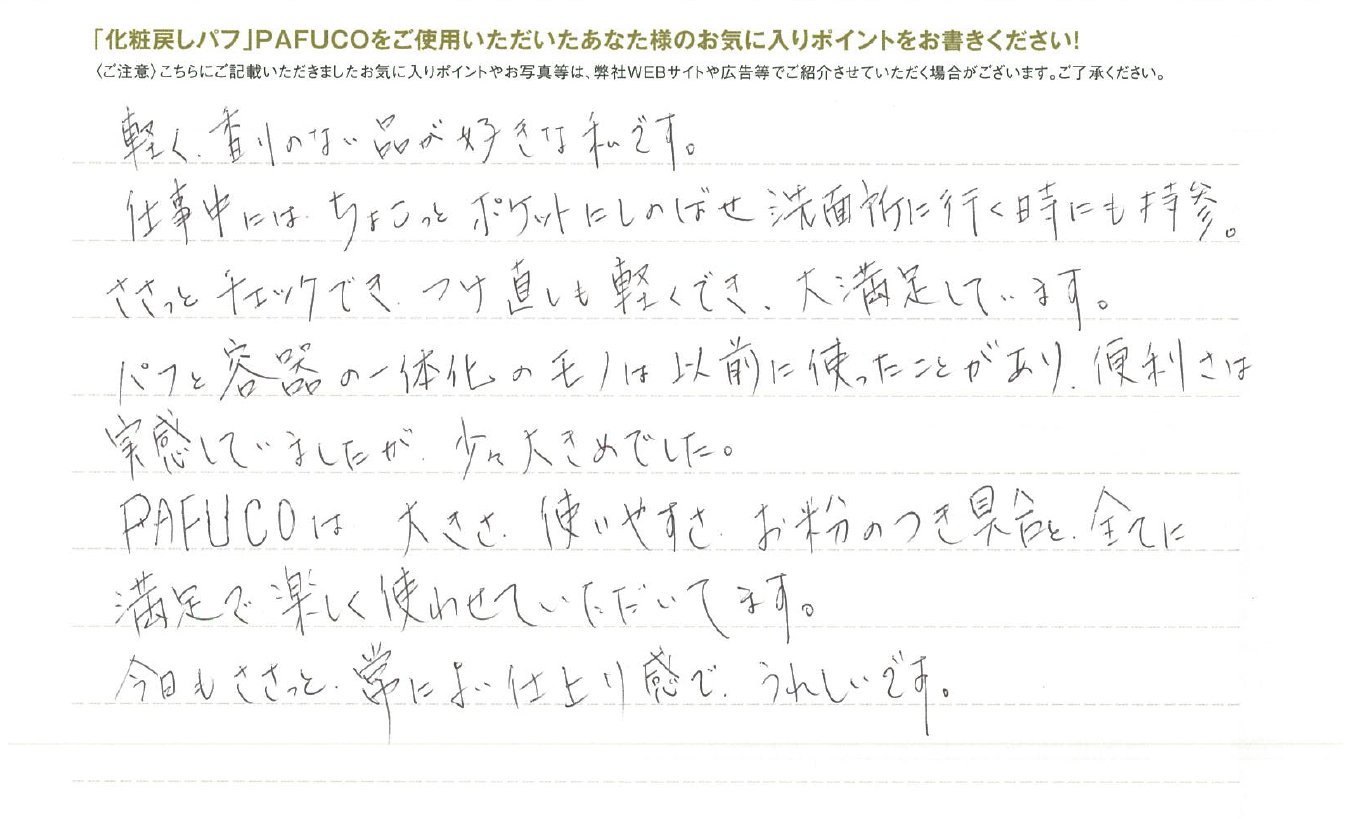 「化粧戻しパフ」PAFUCOをご使用いただいたあなた様のお気に入りポイントをお書きください!
〈ご注意〉こちらにご記載いただきましたお気に入りポイントやお写真等は、弊社WEBサイトや広告等でご紹介させていただく場合がございます。ご了承ください。
軽く、香りのない品が好きな私です。
仕事中には、ちょこっとポケットにしのばせ洗面所に行く時にも持参。
ささっとチェックでき、つけ直しも軽くでき、大満足しています。
パフと容器の一体化のモノは以前に使ったことがあり、便利さは
実感していましたが、少々大きめでした。
PAFUCOは、大きさ、使いやすさ、お粉のつき具合と、全てに
満足で楽しく使わせていただいてます。
今日もささっと、常によい仕上り感で、うれしいです。